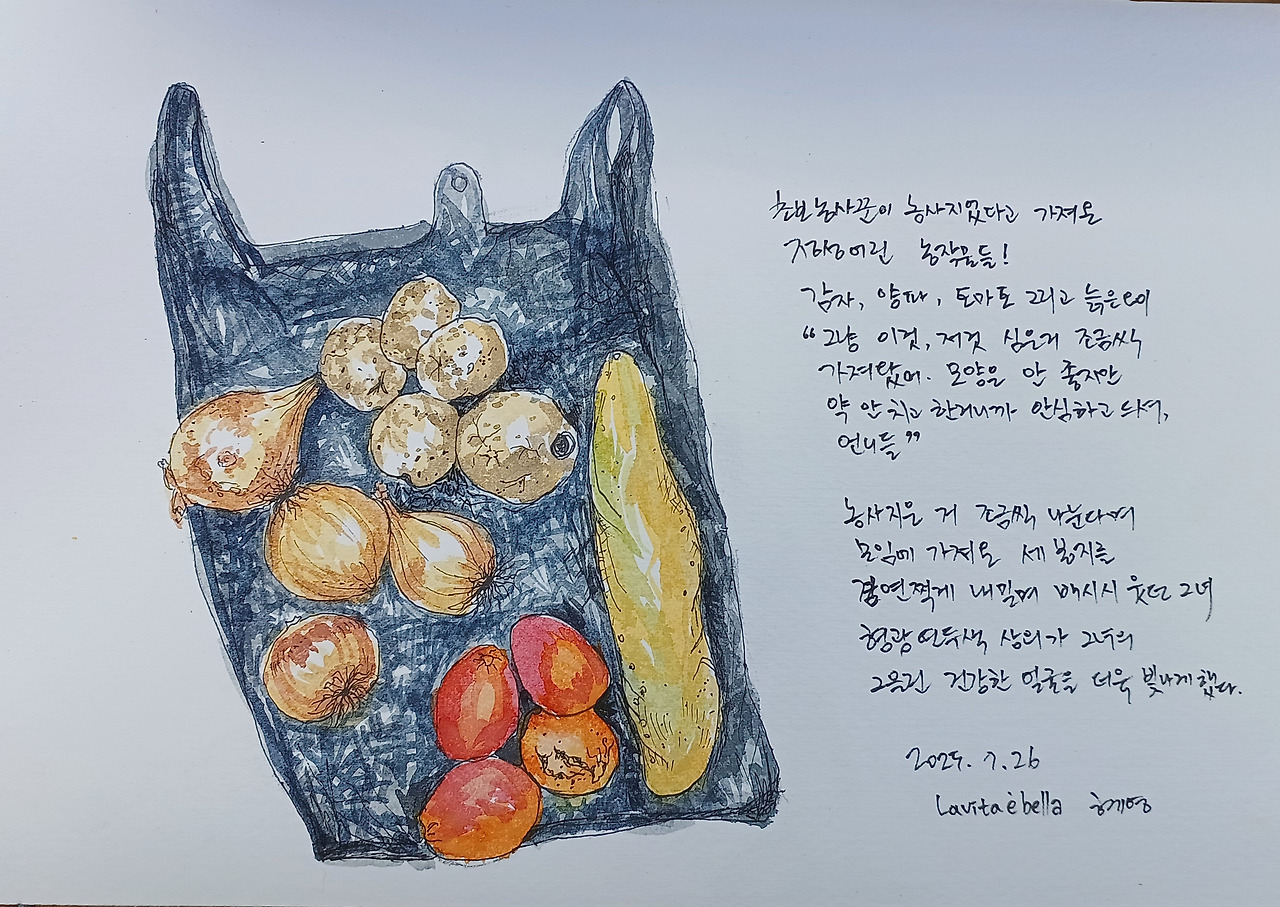 초보농사꾼이 농사지었다고 가져온
정성어린 농작물들!
감자, 양파, 토마토 그리고 늙은오이
“그냥 이것, 저것 심은거 조금씩
가져왔어. 모양은 안 좋지만
약 안 치고 한거니까 안심하고 드셔,
언니들”
농사지은 거 조금씩 나눈다며
모임에 가져온 세 봉지를
겸연쩍게 내밀며 배시시 웃던 그녀
형광연두색 상의가 그녀의
그을린 건강한 얼굴을 더욱 빛나게 했다.
7.26
Lavita è bella